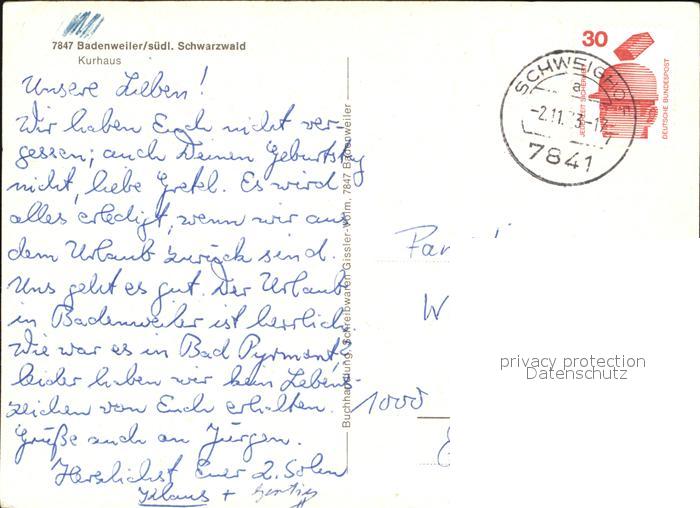 7847 Badenweiler/südl. Schwarzwald
Kurhaus
Unsere Lieben!
Wir haben Euch nicht ver-
gessen; auch Deinen Geburtstag
nicht, liebe Gretel. Es wird
alles erledigt, wenn wir aus
dem Urlaub zurück sind.
Uns geht es gut. Der Urlaub
in Badenweiler ist herrlich.
Wie war es in Bad Pyrmont?
Leider haben wir kein Lebens-
zeichen von Euch erhalten.
Grüße auch an Jürgen.
Herzlichst Euer 2. Sohn
Klaus +
Buchhandlung, Schreibwaren Gissler-Volm, 7847 Badenweiler
30
JEDERZEIT SICHERHEIT
DEUTSCHE BUNDESPOST
SCHWEIGHOF
a
-2.11.73-17
7841
Fam
W
1000
privacy protection
Datenschutz